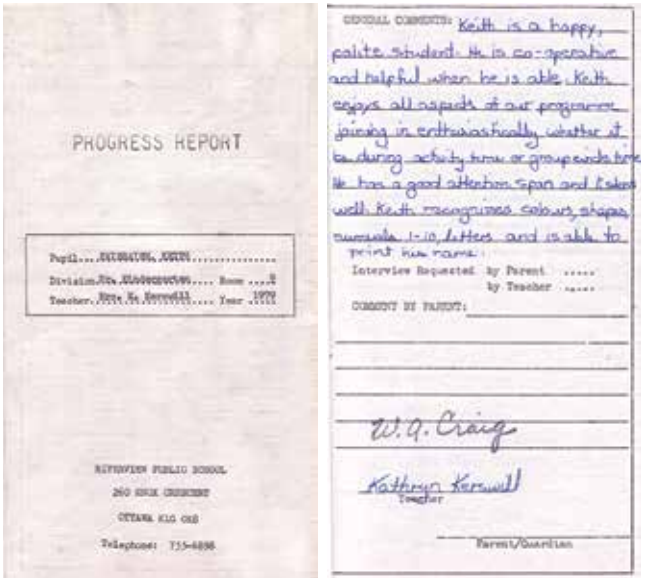 PROGRESS REPORT
Pupil....
Division Jr. Kindergarten.... Room ...
Teacher. Mrs. K. Kerswill.... Year .1979
RIVERVIEW PUBLIC SCHOOL
260 KNOX CRESCENT
OTTAWA K1G 0K8
Telephone: 733-6898
GENERAL COMMENTS: Keith is a happy,
polite student. He is co-operative
and helpful when he is able. Keith
enjoys all aspects of our programme
joining in enthusiastically whether it
be during activity time or group circle time
He has a good attention span and listens
well. Keith recognizes colours, shapes,
numerals 1-10, letters and is able to
print his name.
Interview Requested by Parent .....
by Teacher .....
COMMENT BY PARENT:
W. A. Craig
Kathryn Kerswill
Teacher
Parent/Guardian